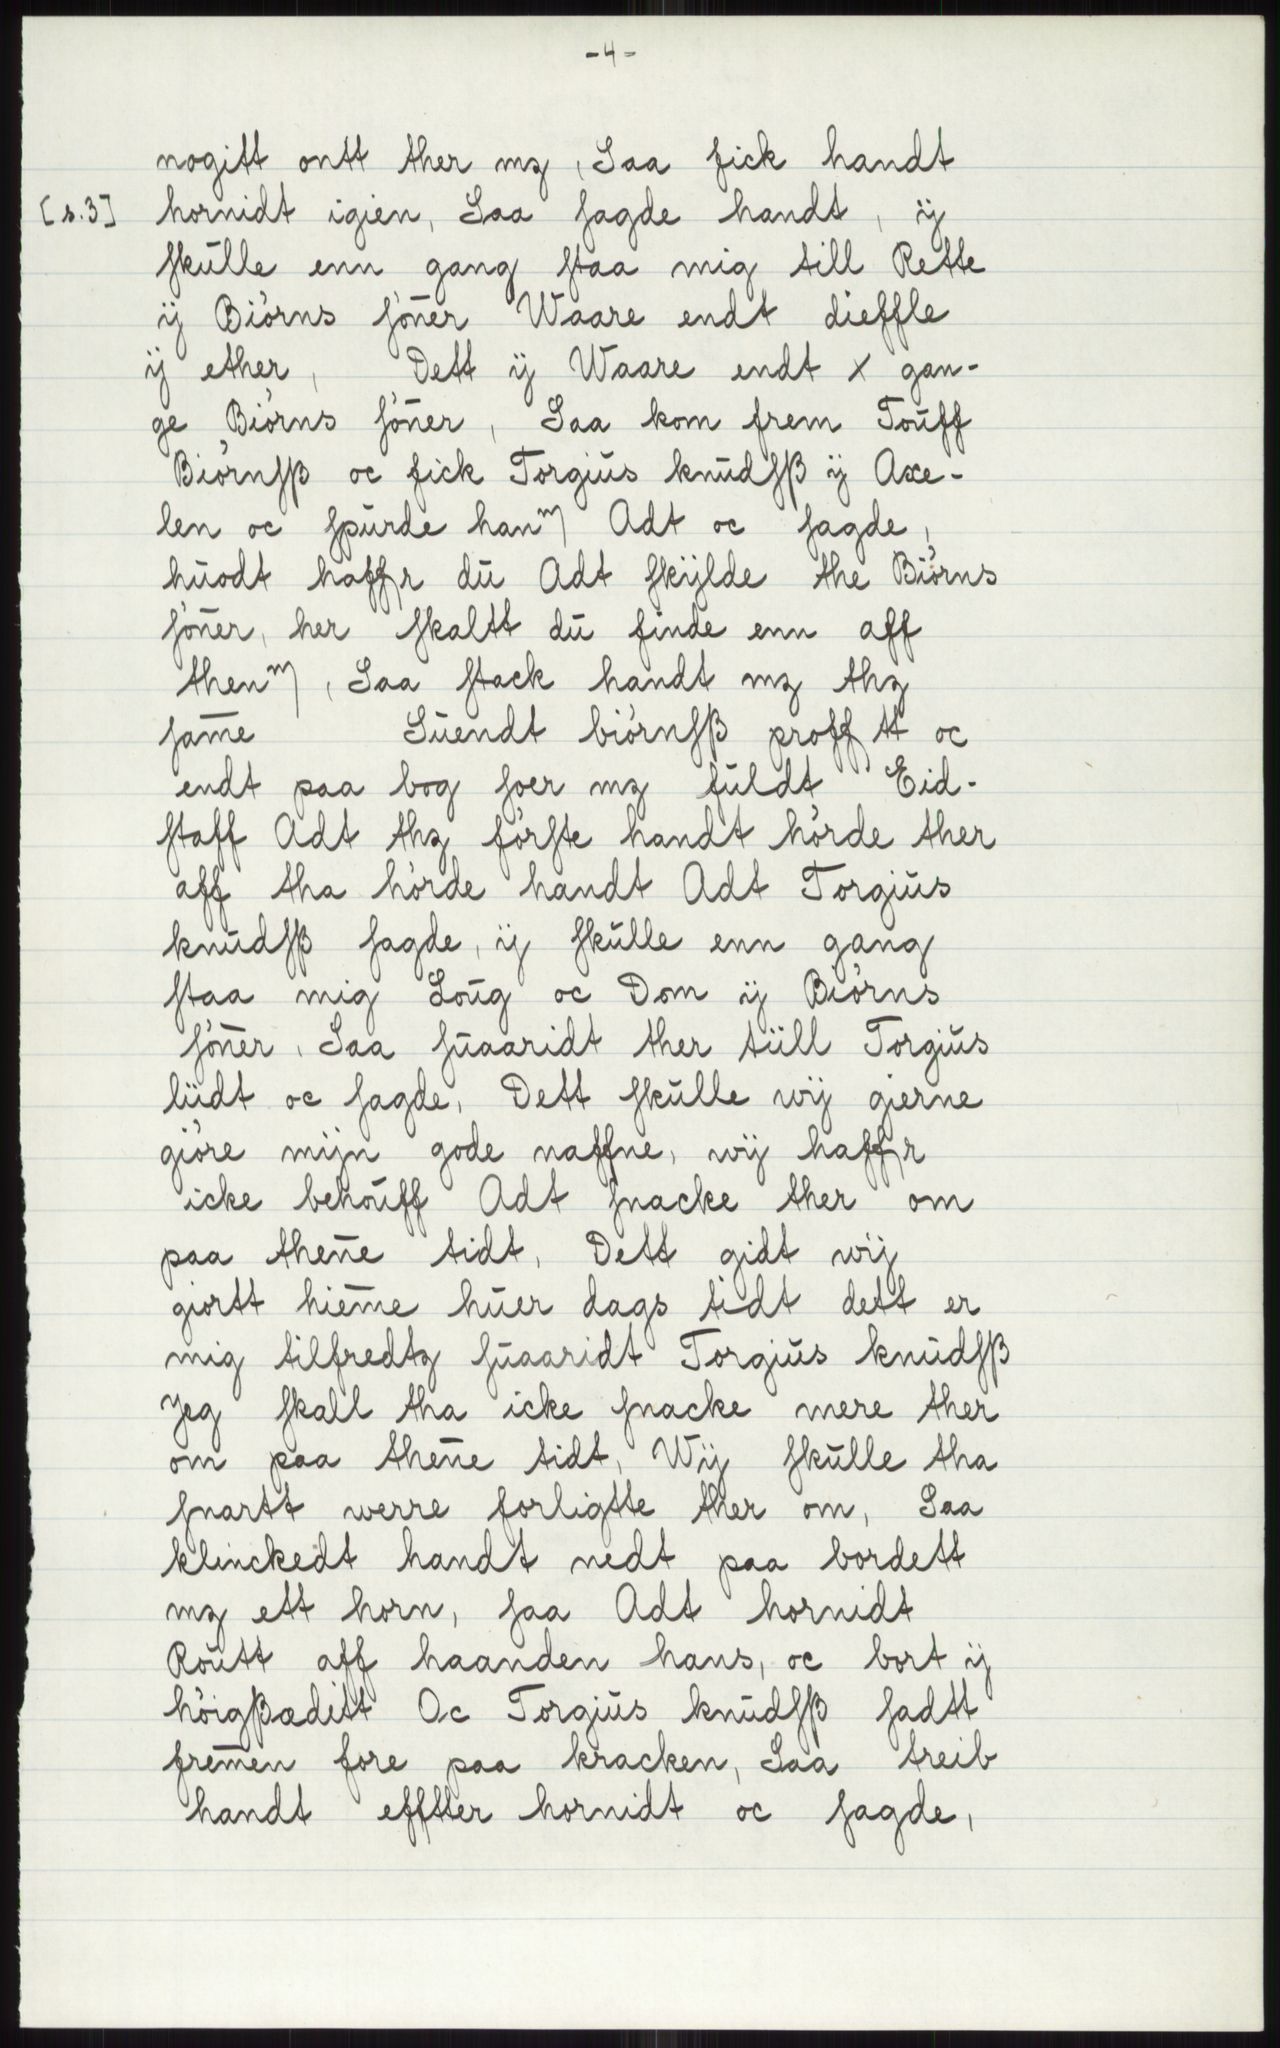 -4-
nogitt ontt ther mz, Saa fick handt
[s.3] hornidt igien, Saa ſagde handt, ÿ
ſkŭlle enn gang ſtaa mig till Rette
ÿ Biórns ſón̄er Waare endt dieffle
ÿ ether, Dett ÿ Waare endt x gan-
ge Biórns ſón̄er, Saa kom frem Toŭff
Biórnſß oc fick Torgiŭs knŭdſß ÿ Axe-
len oc ſpŭrde hanᵐ Adt oc ſagde,
hŭodt haffr dŭ Adt ſkÿlde the Biórns
ſón̄er, her ſkaltt dŭ finde enn aff
thenᵐ, Saa ſtack handt mz thz
ſam̄e Sŭendt biórnſß profftt oc
endt paa bog ſoer mz fŭldt Eid-
ſtaff Adt thz fórſte handt hórde ther
aff tha hórde handt Adt Torgiŭs
knŭdſß ſagde, ÿ ſkŭlle enn gang
ſtaa mig Loŭg oc Dom ÿ Biórns
ſón̄er, Saa ſŭaaridt ther tiill Torgiŭs
liŭdt oc ſagde, Dett ſkŭlle wÿ gierne
gióre mÿn gode naffne, wÿ haffr
icke behoŭff Adt ſnacke ther om
paa then̄e tidt, Dett gidt wÿ
giortt hiem̄e hŭer dags tidt dett er
mig tilfredtz ſŭaaridt Torgiŭs knŭdſß
Jeg ſkall tha icke ſnacke mere ther
om paa then̄e tidt, Wÿ ſkŭlle tha
ſnartt werre forligtte ther om, Saa
klinckedt handt nedt paa bordett
mz ett horn, ſaa Adt hornidt
Roŭtt aff haanden hans, oc bort ÿ
hóigßæditt Oc Torgiŭs knŭdſß ſadtt
frem̄en fore paa kracken, Saa treib
handt efftter hornidt oc ſagde,